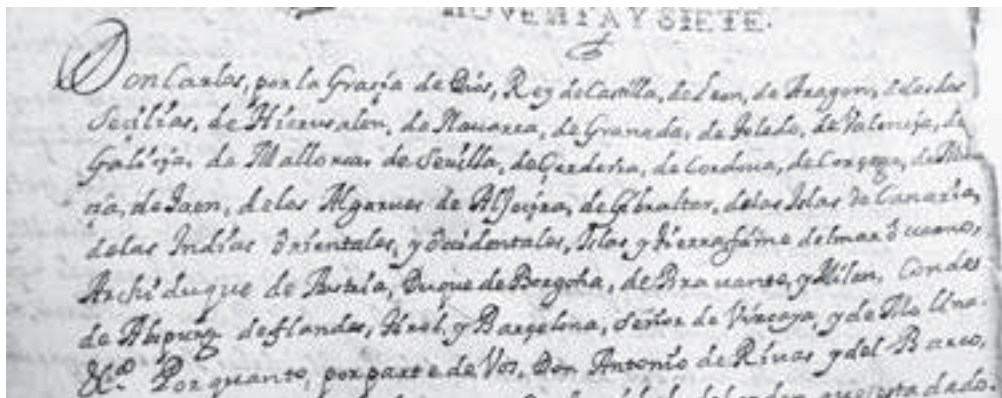 NOVENTA Y SIETE.
Don Carlos, por la Graçia de Dios, Rey de Castilla, de Leon, de Aragon, de las dos
Seçilias, de Hierusalen, de Nauarra, de Granada, de Toledo, de Valençia, de
Galiçia, de Mallorcas de Seuilla, de Çerdeña, de Cordoua, de Corçega, de Mur
çia, de Jaen, de los Algarues de Aljeçira, de Gibraltar, de las Islas de Canaria,
de las Indias Orientales, y Occidentales, Islas, y tierra firme del mar Occeano,
Archiduque de Austria, Duque de Borgoña, de Brauante, y Milan, Conde
de Abspurg de Flandes, Tirol, y Barçelona, Señor de Vizcaya, y de Molina.
&ca. Por quanto, por parte de Vos, Don Antonio de Riuas y del Barco,